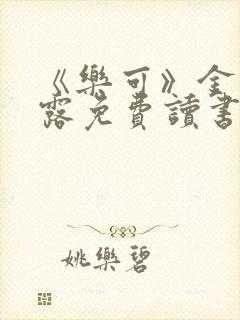 《樂可》金
露免費讀書
姚樂碧